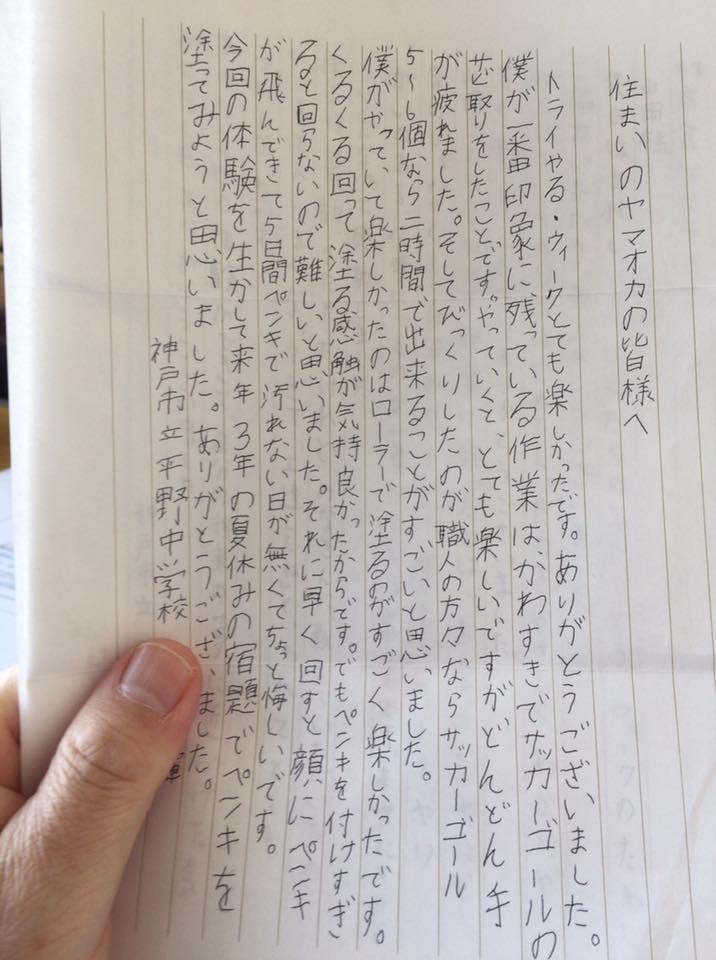 住まいのヤマオカの皆様へ
トライやる・ウィークとても楽しかったです。ありがとうございました。
僕が一番印象に残っている作業は、かわすきでサッカーゴールの
サビ取りをしたことです。やっていくと、とても楽しいですがどんどん手
が疲れました。そしてびっくりしたのが職人の方々ならサッカーゴール
5〜6個なら二時間で出来ることがすごいと思いました。
僕がやっていて楽しかったのはローラーで塗るのがすごく楽しかったです。
くるくる回って塗る感触が気持良かったからです。でもペンキを付けすぎ
ると回らないので難しいと思いました。それに早く回すと顔にペンキ
が飛んできて5日間ペンキで汚れない日が無くてちょっと悔しいです。
今回の体験を生かして来年3年の夏休みの宿題でペンキを
塗ってみようと思いました。ありがとうございました。
神戸市立平野中学校